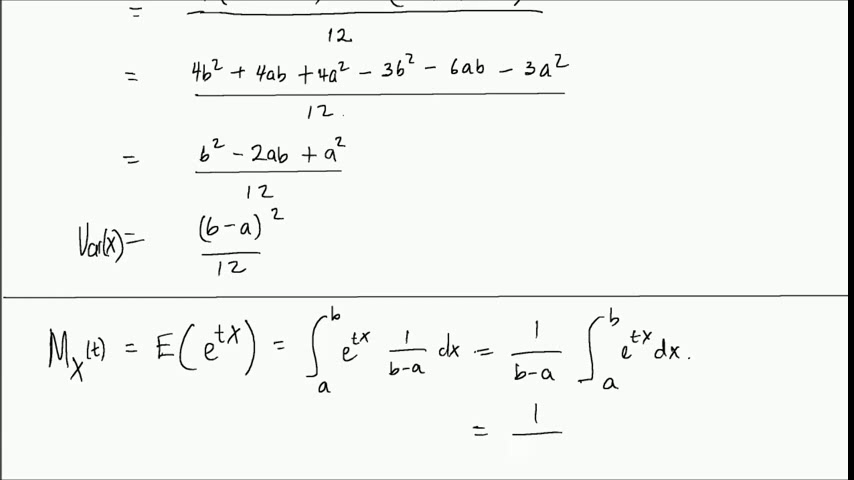 =
12
= 4b² + 4ab + 4a² - 3b² - 6ab - 3a²
12.
= b² - 2ab + a²
12
Var(x) = (b-a)²
12
M_X(t) = E(e^{tX}) = ∫_a^b e^{tx} 1/(b-a) dx = 1/(b-a) ∫_a^b e^{tx} dx.
= 1